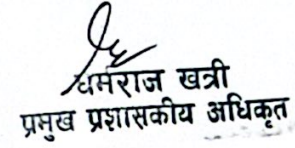 धर्मराज खत्री
प्रमुख प्रशासकीय अधिकृत